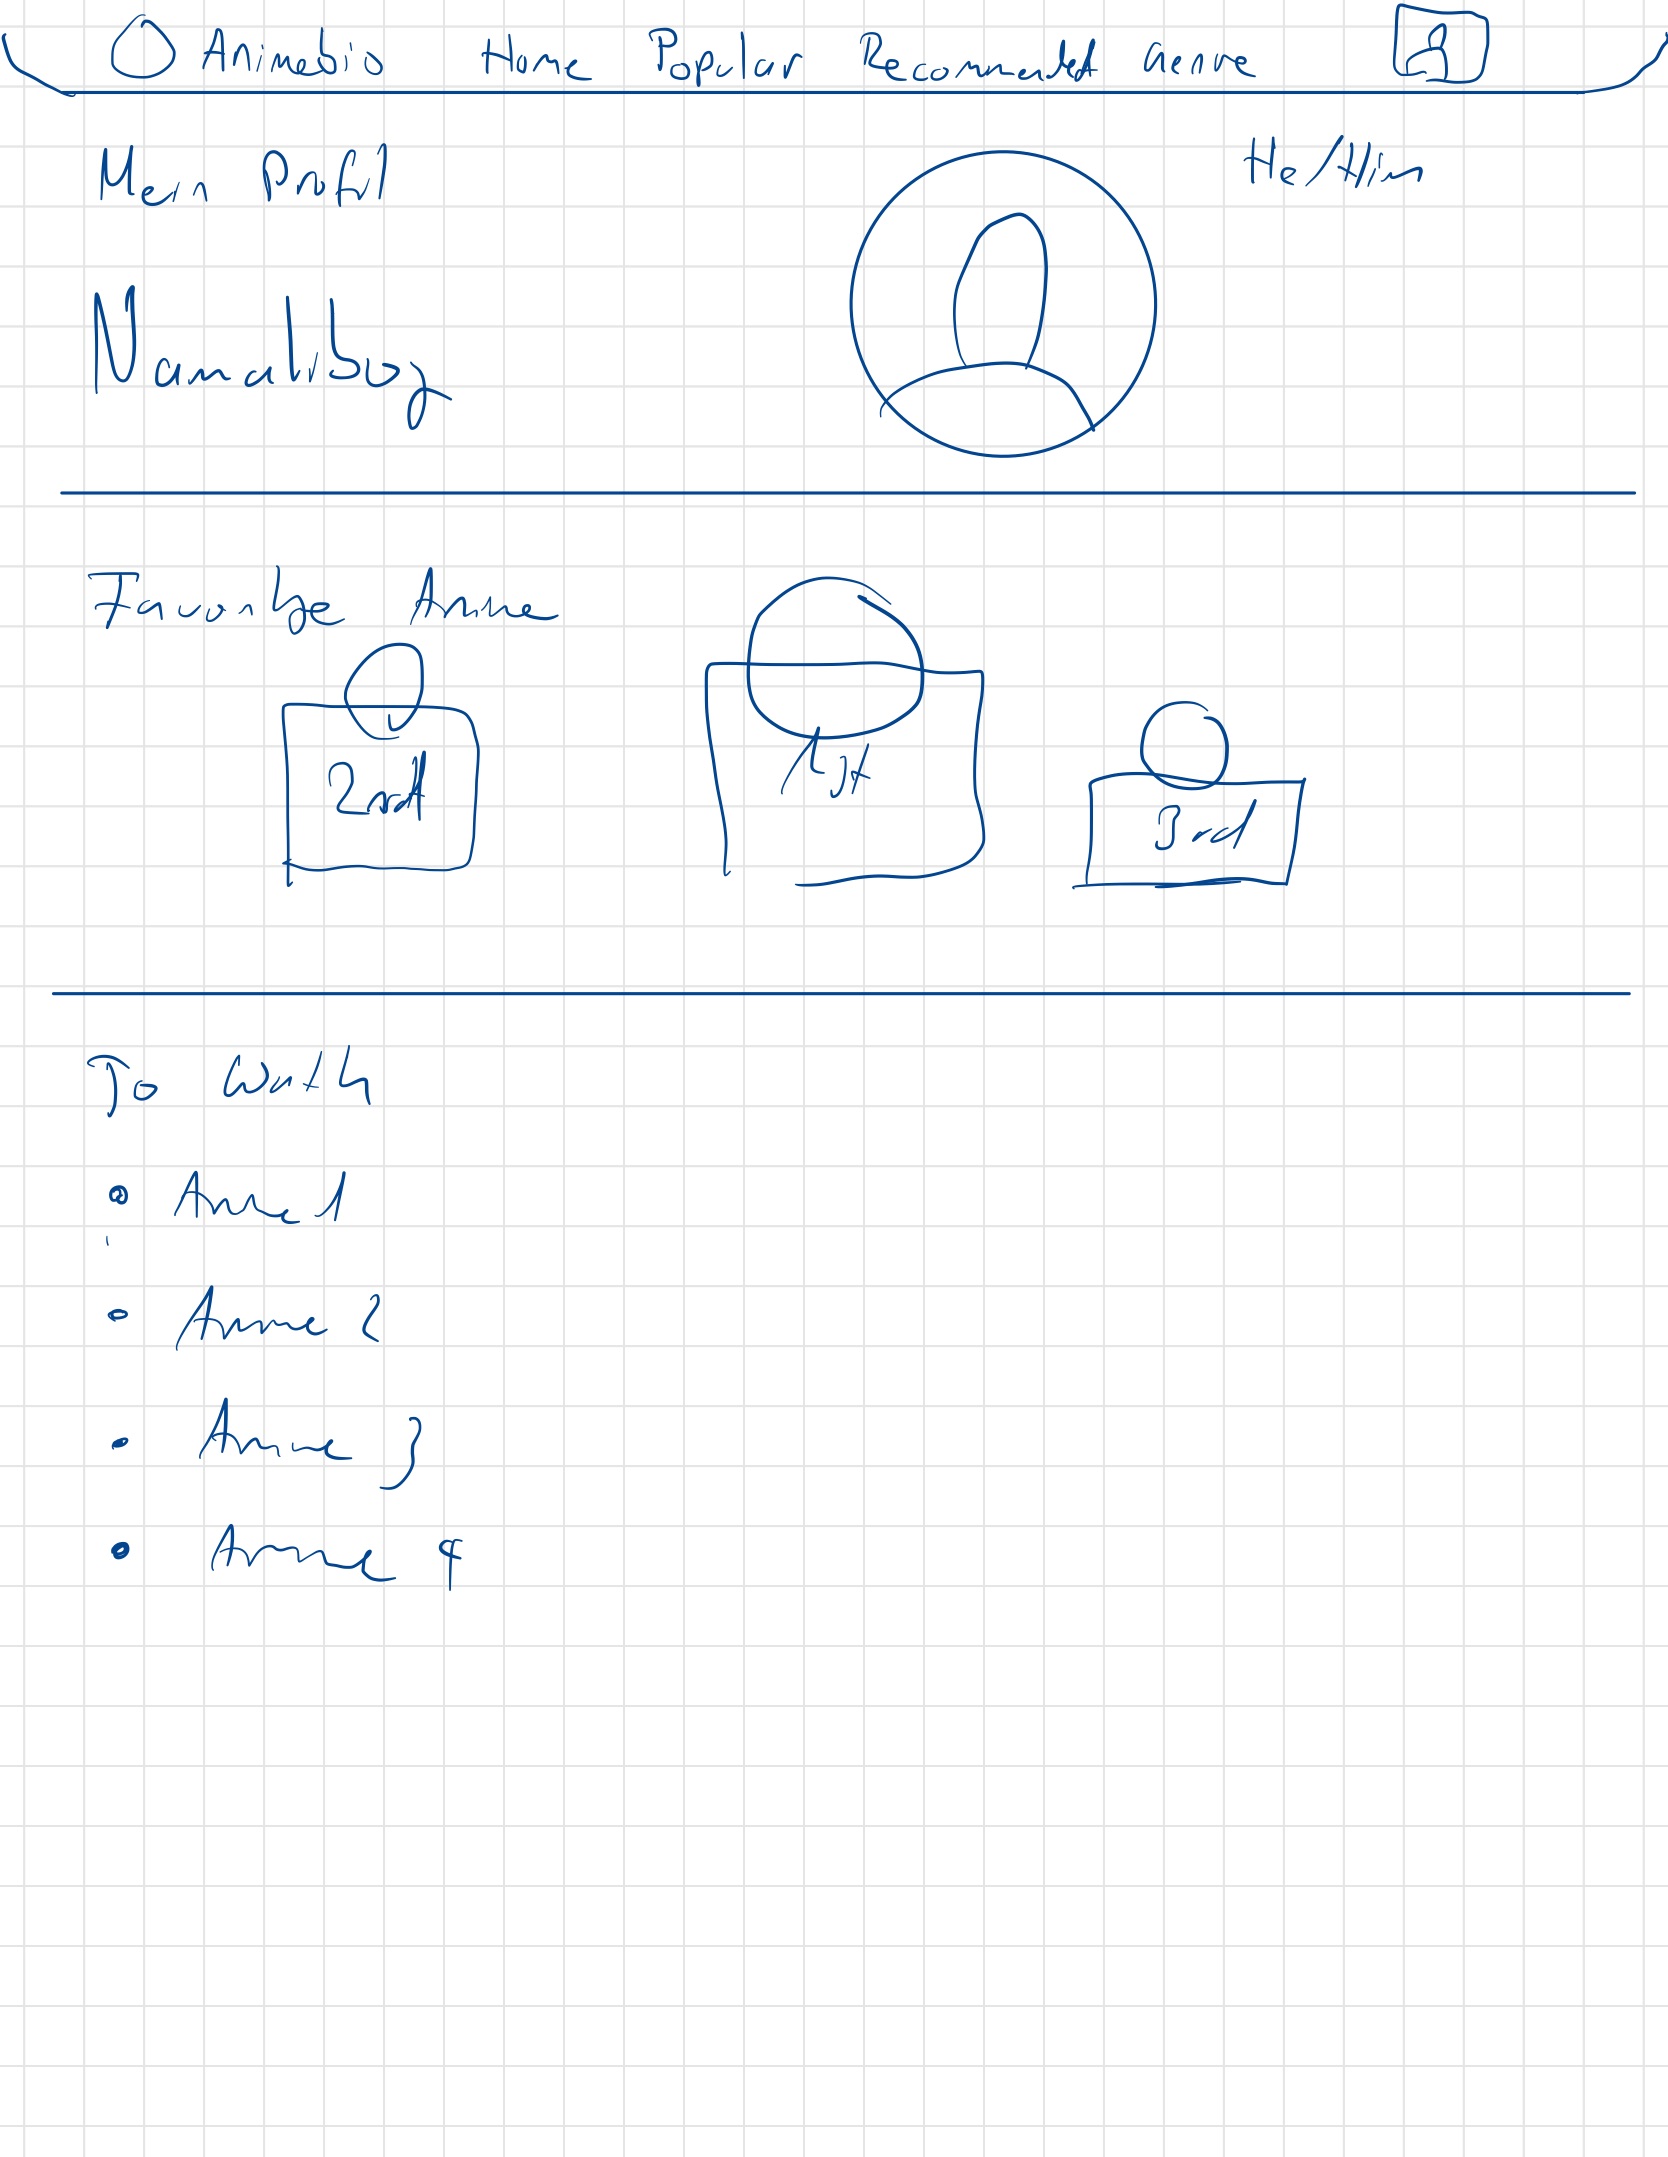 Animebio Home Popular Recommended Genre
Mein Profil He/Him
Favorite Anime
2nd 1st 3rd
To Watch
Anime 1
Anime 2
Anime 3
Anime 4